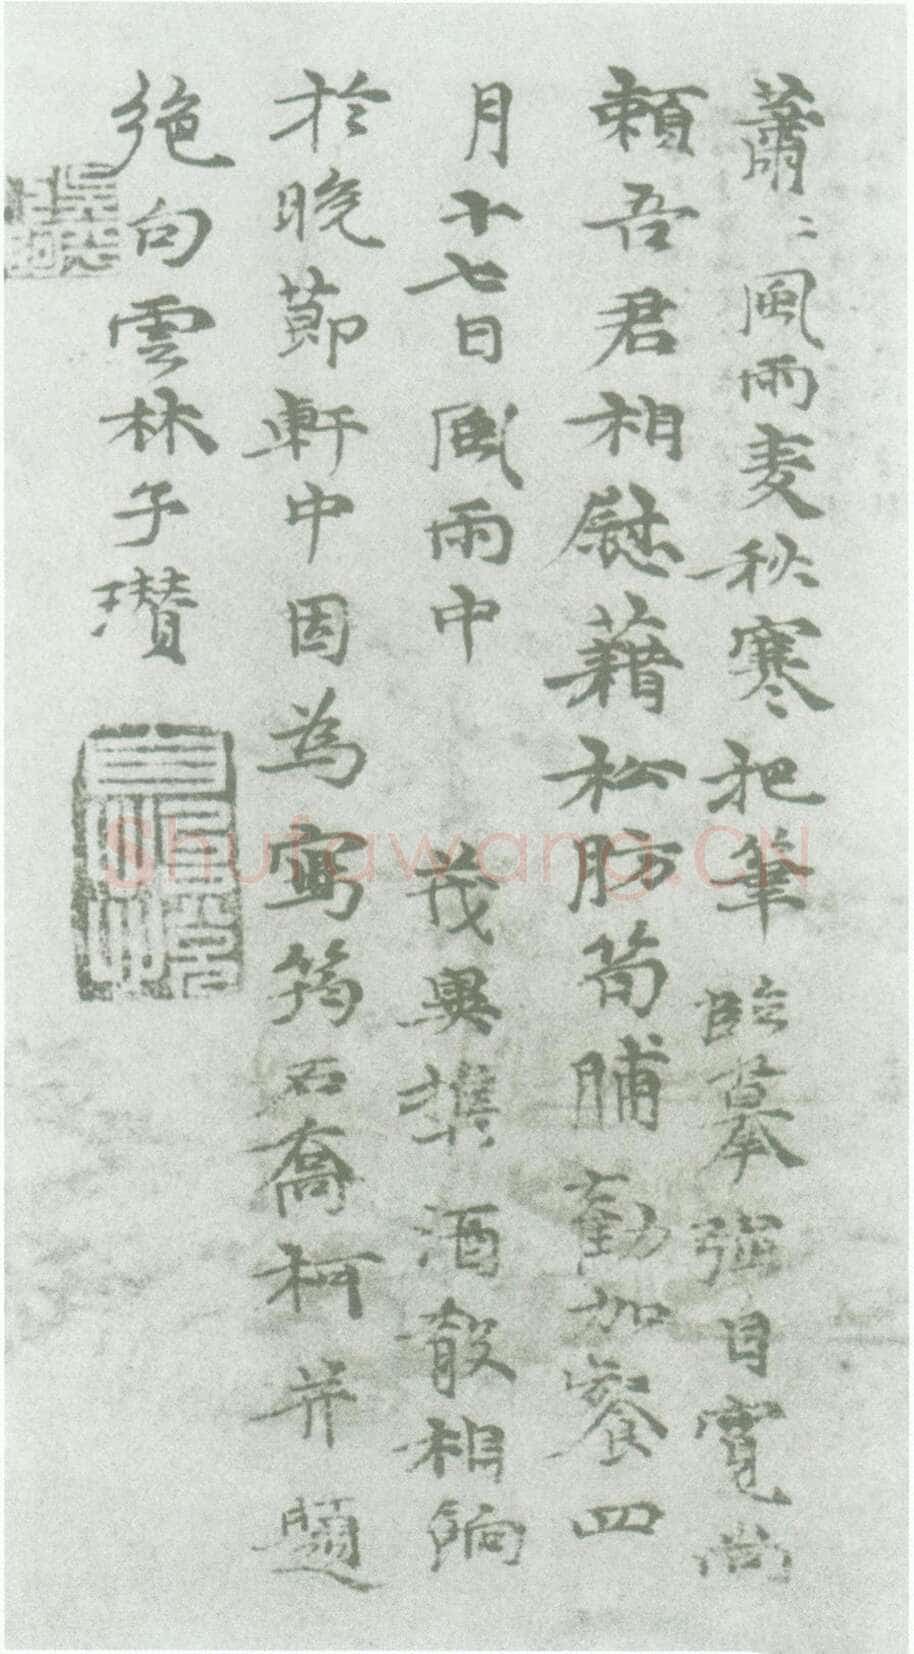 蕭〻風雨麦秋寒把筆臨摹強自寬尚
賴吾君相慰藉松肪筍脯勸加餐四
月十七日風雨中 茂異携酒殽相餉
於晚節軒中因為寫筠石喬柯并題
絶句雲林子瓚
Shufawang.CN